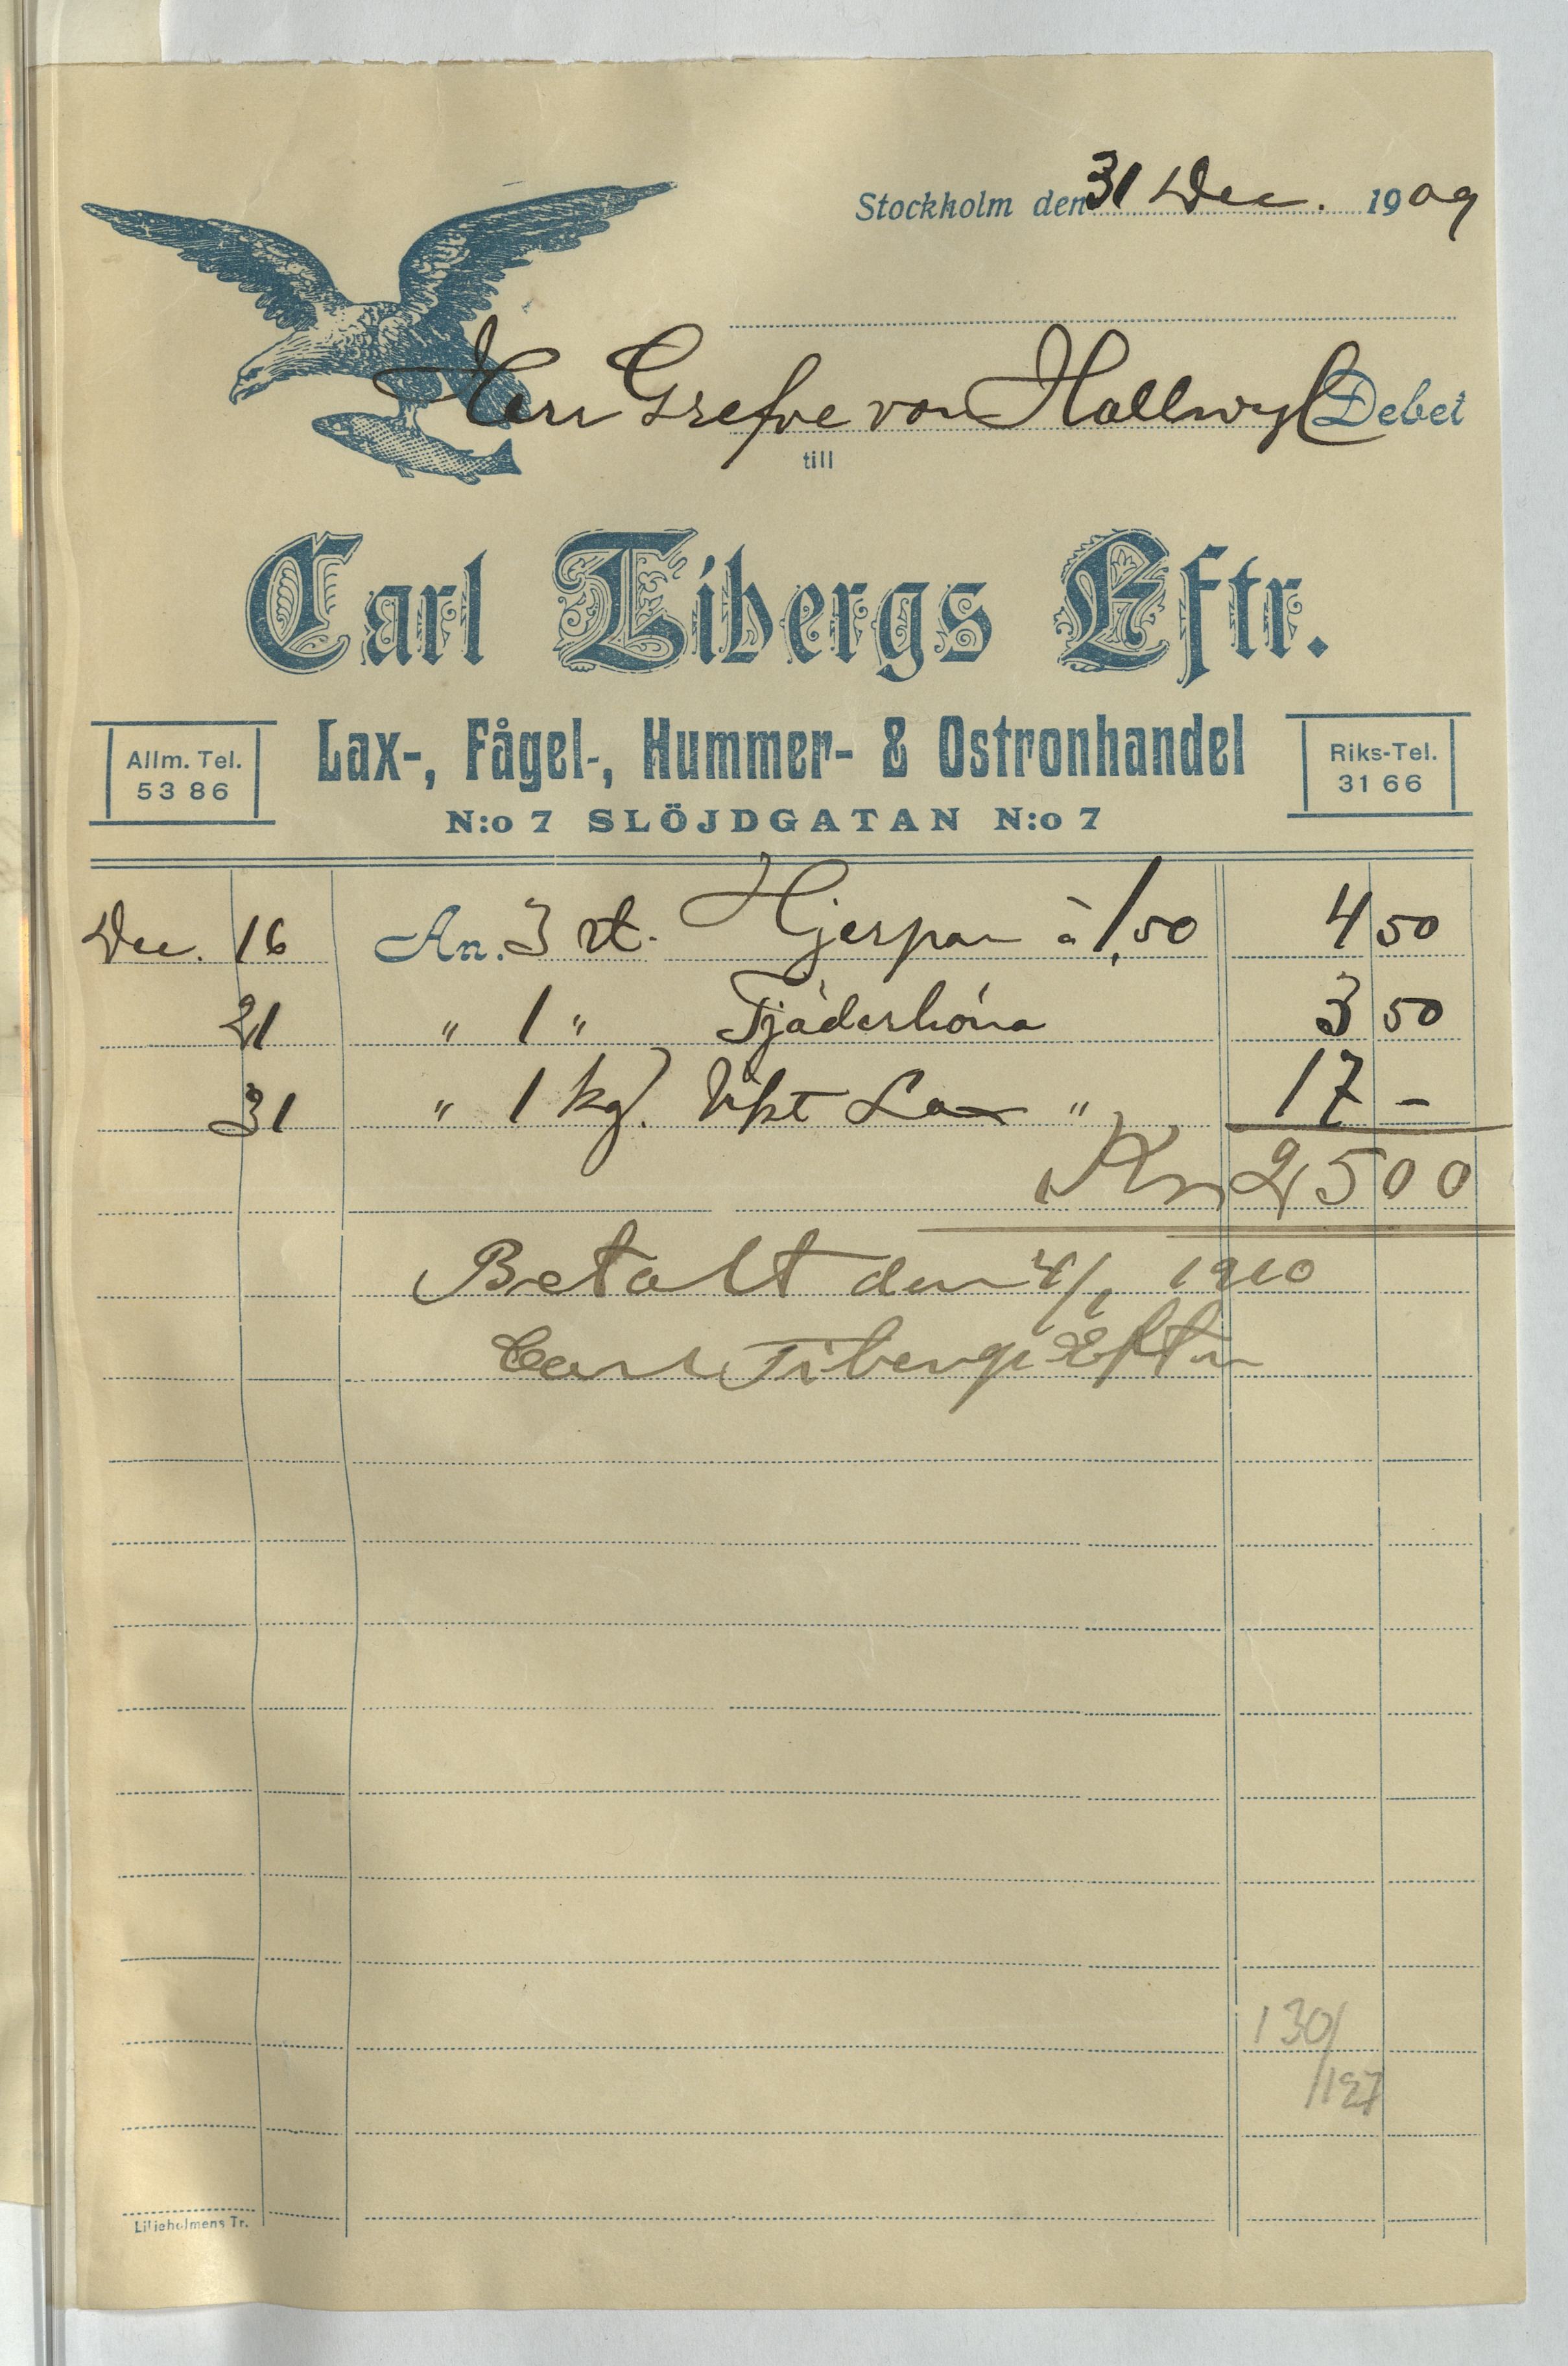 Stockholm den 31 Dec. 1909
Herr Grefve von Hallwyl Debet
till
Carl Tibergs Eftr.
Lax-, Fågel-, Hummer- & Ostronhandel
Allm. Tel.
53 86
Riks-Tel.
31 66
N:o 7 SLÖJDGATAN N:o 7
Dec. 16 An. 3 st. Hjerpar à 1,50 4 50
21 " 1 " Tjäderhöna 3 50
31 " 1 kg. Lax " 17 -
Kr 25 00
Betalt den 4/1 1910
Carl Tibergs Eftr
130/
Liljeholmens Tr.